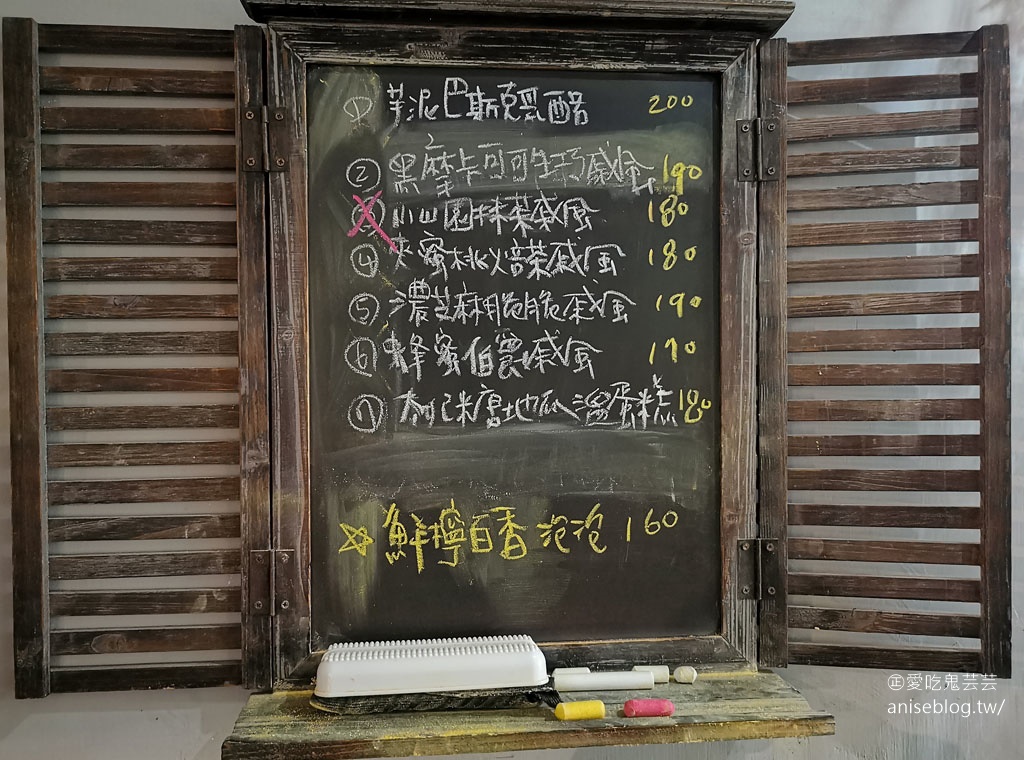 ① 芋泥巴斯克乳酪 200
② 黑摩卡可可生巧戚風 190
③ 小山園抹茶戚風 180
④ 蜜桃焙茶戚風 180
⑤ 濃芝麻脆脆戚風 190
⑥ 蜂蜜伯爵戚風 170
⑦ 地瓜 蛋糕 180
☆ 鮮檸百香泡泡 160
愛吃鬼芸芸
aniseblog.tw/